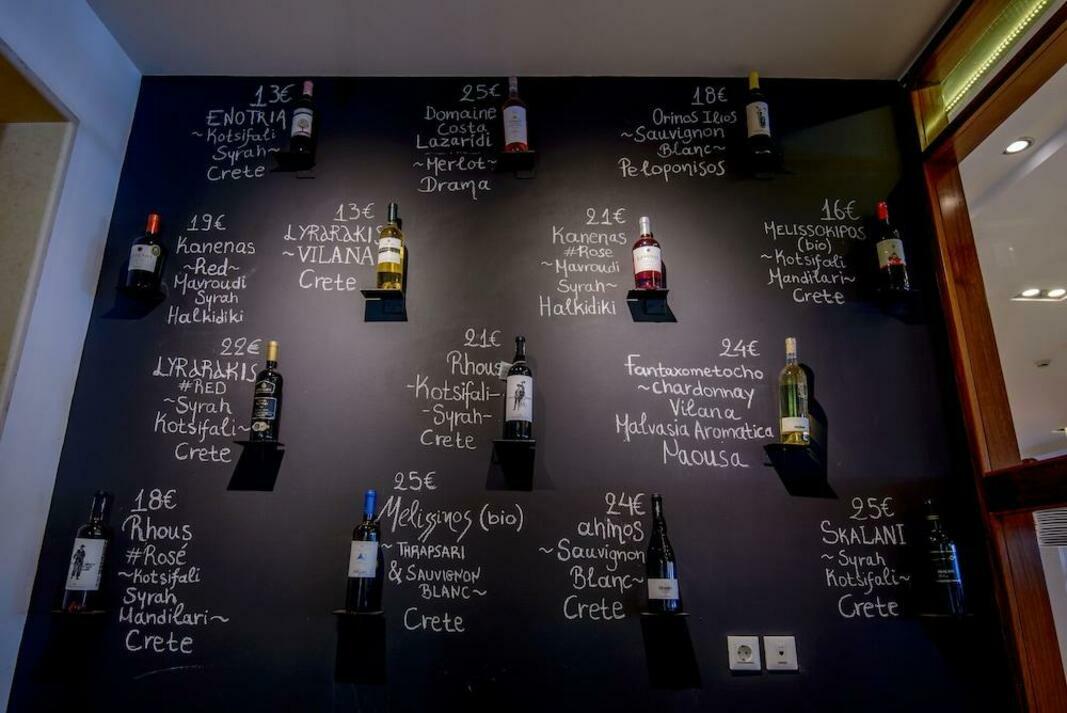 13€
ENOTRIA
~Kotsifali
Syrah~
Crete
25€
Domaine
Costa
Lazaridi
~Merlot~
Drama
18€
Orinos Ilios
~Sauvignon
Blanc~
Peloponisos
19€
Kanenas
~Red~
Mavroudi
Syrah
Halkidiki
13€
LYRARAKIS
~VILANA
Crete
21€
Kanenas
#Rose
~Mavroudi
Syrah~
Halkidiki
16€
MELISSOKIPOS
(bio)
~Kotsifali
Mandilari~
Crete
22€
LYRARAKIS
#RED
~Syrah
Kotsifali~
Crete
21€
Rhous
-Kotsifali-
-Syrah-
Crete
24€
Fantaxometocho
~Chardonnay
Vilana
Malvasia Aromatica
Naousa
18€
Rhous
#Rosé
~Kotsifali
Syrah
Mandilari~
Crete
25€
Melissinos (bio)
~THRAPSARI
& SAUVIGNON
BLANC~
Crete
24€
ahinos
~Sauvignon
Blanc~
Crete
25€
SKALANI
~Syrah
Kotsifali~
Crete